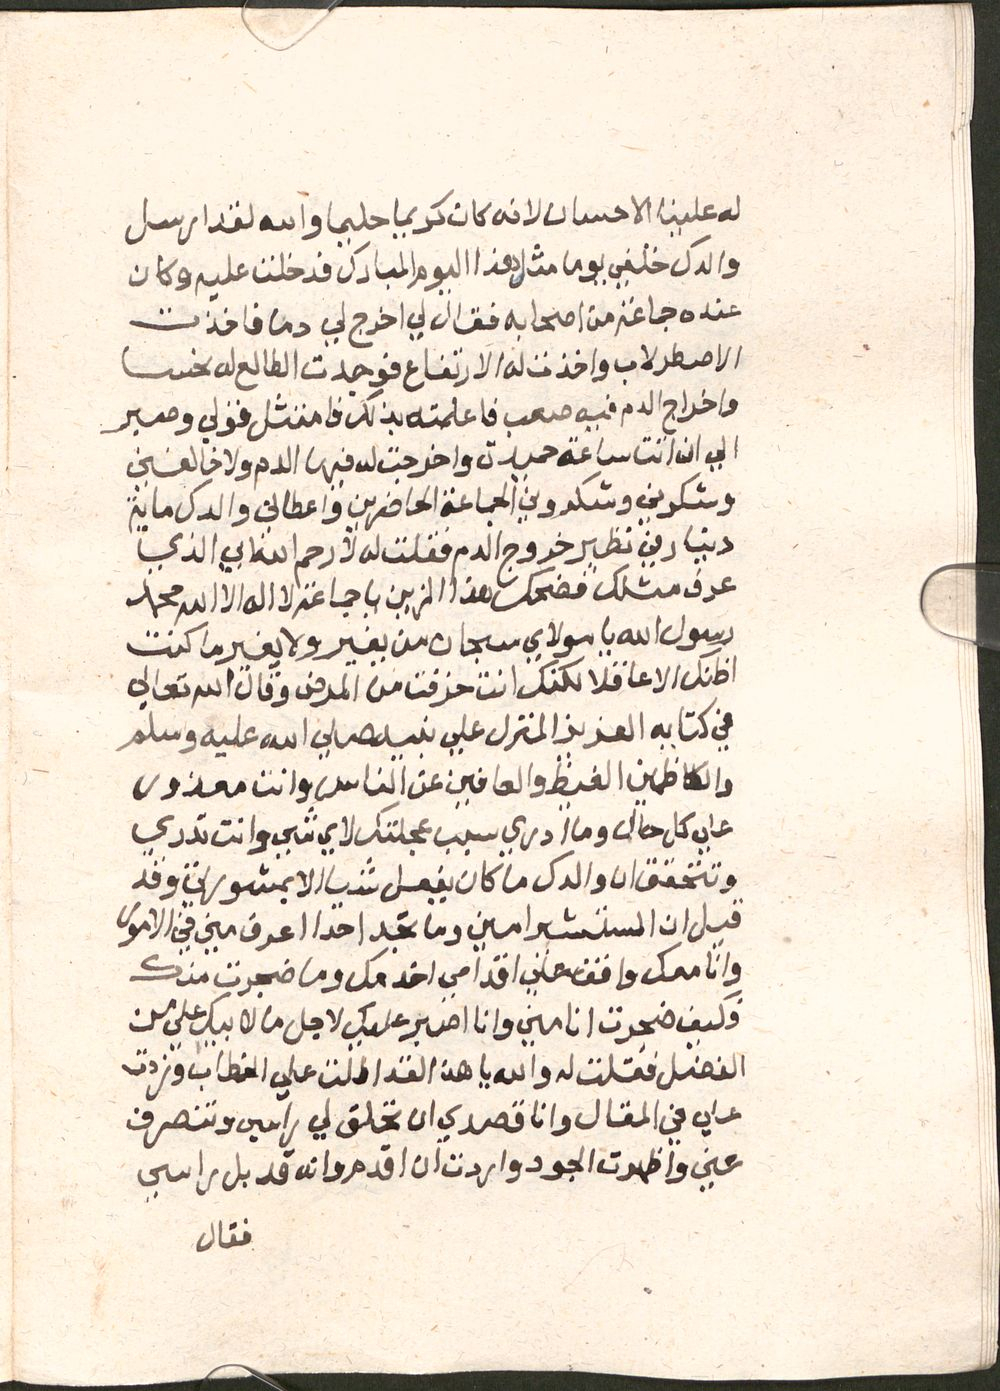 له علينا الاحسان لانه كان كريما حليما والله لقد ارسل
والدك خلفي يوما مثل هذا اليوم المبارك فدخلت عليه وكان
عنده جماعة من اصحابه فقال لي اخرج لي دما فاخذت
الاصطرلاب واخذت له الارتفاع فوجدت الطالع له نحسا
واخراج الدم فيه صعب فاعلمته بذلك فامتثل قولي وصبر
الي ان اتت ساعة حميدة واخرجت له فيها الدم ولا خالفني
وشكرني وشكروني الجماعة الحاضرين واعطاني والدك ماية
دينار في نظير خروج الدم فقلت له لا رحم الله ابي الذي
عرف مثلك فضحك هذا المزين يا جماعة لا اله الا الله محمد
رسول الله يا مولاي سبحان من يغير ولا يغير ما كنت
اظنك الا عاقلا لكنك انت خرفت من المرض وقال الله تعالي
في كتابه العزيز المنزل علي نبيه صلي الله عليه وسلم
والكاظمين الغيظ والعافين عن الناس وانت معذور
علي كل حال وما ادري سبب عجلتك لاي شي وانت تدري
وتتحقق ان والدك ما كان يفعل شيا الا بمشورتي وقد
قيل ان المستشير امين وما تجد احدا اعرف مني في الامور
وانا معك واقف علي اقدامي اخدمك وما ضجرت منك
فكيف ضجرت انا مني وانا اصبر عليك لاجل ما لابيك علي من
الفضل فقلت له والله يا هذا لقد اطلت علي الخطاب وزدت
علي في المقال وانا قصدي ان تحلق لي راسي وتنصرف
عني واظهرت الجود واردت ان اقدم وانه قد بل راسي
فقال